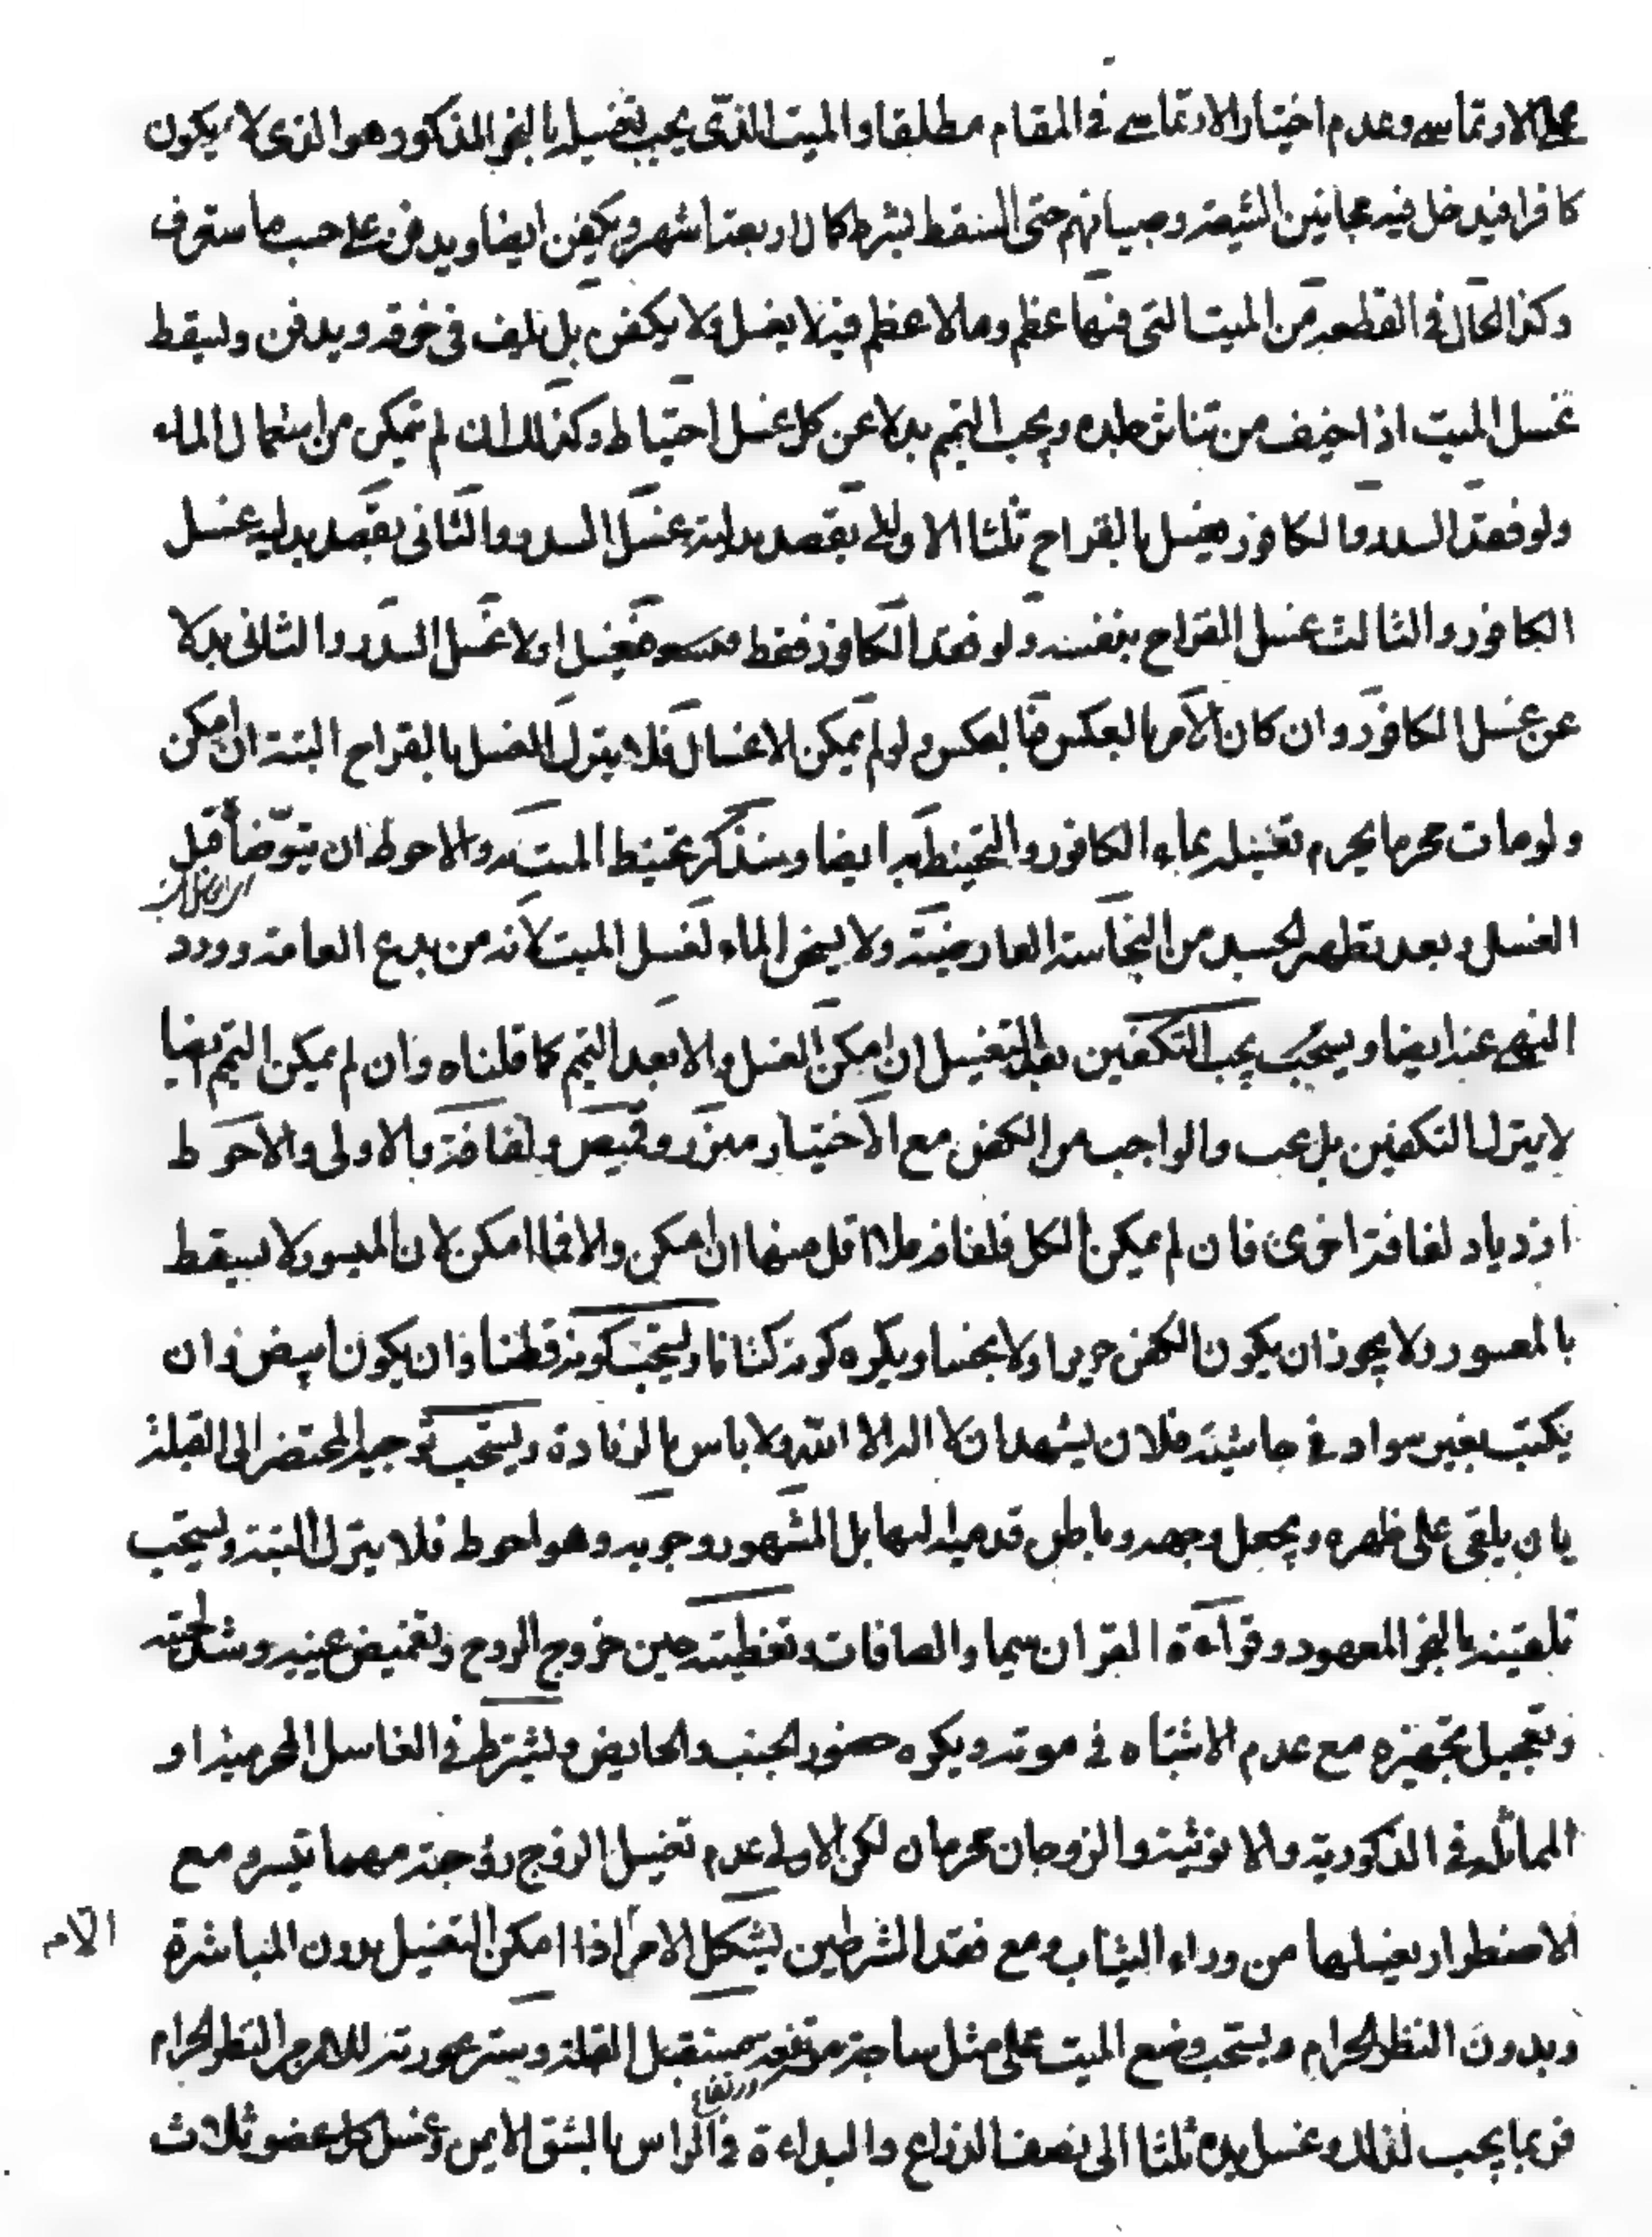 على الارتماسى وعدم اختيار الارتماسى فى المقام مطلقا والميت الذى يجب تغسيله بالنحو المذكور هو الذى لا يكون
كافرا فيدخل فيه مجانين الشيعة وصبيانهم حتى السقط بشرط كمال اربعة اشهر ويكفن ايضا ويدفن على حسب ما ستعرف
وكذا الحال فى القطعة من الميت التى فيها عظم وما لا عظم فيه لا يغسل ولا يكفن بل يلف فى خرقه ويدفن وليقط
غسل الميت اذا خيف من تناثر جلده ويجب التيمم بدلا عن كل غسل احتياط وكذلك ان لم تمكن من استعمال الماء
ولو فقد السدر والكافور يغسل بالقراح ثلثا الاولى يقصد بدلية غسل السدر والثانى يقصد بدلية غسل
الكافور والثالث غسل القراح بنفسه ولو فقد الكافور فقط فيغسل اولا غسل السدر والثانى بدلا
عن غسل الكافور وان كان الامر بالعكس فبالعكس ولو لم يمكن الاغسال فلا يترك الغسل بالقراح البتة ان امكن
ولو مات محرما يحرم تغسيله بماء الكافور والتحنيط به ايضا وسنذكر تحنيط الميت والاحوط ان يتوضأ قبل
الغسل وبعد تطهر الجسد من النجاسة العارضية ولا يسخن الماء لغسل الميت لانه من بدع العامة وورد
النهى عنه ايضا ويستحب يجب التكفين بعد التغسيل ان امكن الغسل والا بعد التيمم كما قلناه وان لم يمكن التيمم ايضا
لا يترك التكفين بل يجب والواجب من الكفن مع الاختيار ميزر وقميص ولفافة والاولى والاحوط
ازدياد لفافة اخرى فان لم يمكن الكل فلفافة فلا اقل منها ان امكن والا فما امكن لان الميسور لا يسقط
بالمعسور ولا يجوز ان يكون الكفن حريرا ولا نجسا ويكره كونه كتانا ويستحب كونه قطنا وان يكون ابيض وان
يكتب بغير سواد فى حاشيته فلان يشهد ان لا اله الا الله ولا باس بالزيادة ويستحب توجيه المحتضر الى القبلة
بان يلقى على ظهره ويجعل وجهه وباطن قدميه اليها بل المشهور وجوبه وهو احوط فلا يترك البتة ويستحب
تلقينه بالنحو المعهود وقراءة القران سيما والصافات وتغطيته حين خروج الروح وتغميض عينيه وشد لحيته
وتعجيل تجهيزه مع عدم الاشتباه فى موته ويكره حضور الجنب والحايض ويشترط فى الغاسل المحرمية او
المماثلة فى الذكورية والانوثية والزوجان محرمان لكن الاولى عدم تغسيل الزوج زوجته مهما تيسر ومع
الاضطرار يغسلها من وراء الثياب ومع فقد الشرطين يشكل الامر اذا امكن التغسيل بدون المباشرة
وبدون النظر الحرام ويستحب وضع الميت على مثل ساجة مرتفعة مستقبل القبلة وستر عورته للامن النظر الحرام
فربما يجب لذلك وغسل يده ثلثا الى نصف الذراع والبداءة فى الراس بالشق الايمن وغسل كل عضو ثلاث